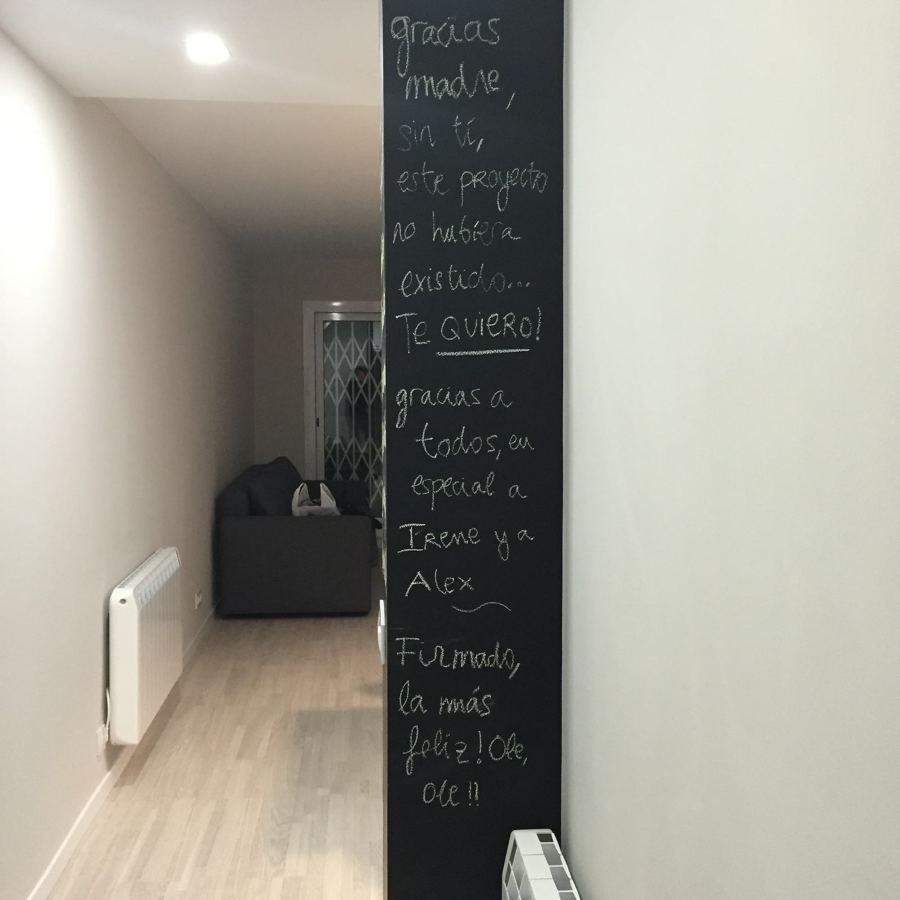 gracias
madre,
sin tí,
este proyecto
no hubiera
existido...
Te QUIERO!
gracias a
todos, en
especial a
IRene y a
Alex
Firmado,
la más
feliz! Ole,
Ole!!